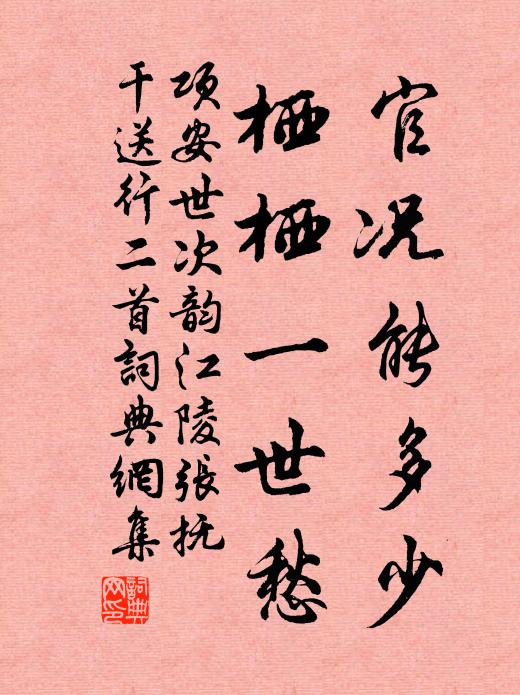 官况能多少
栖栖一世愁
项安世次韵江陵张抚
干送行二首詞典網集
詞典網印